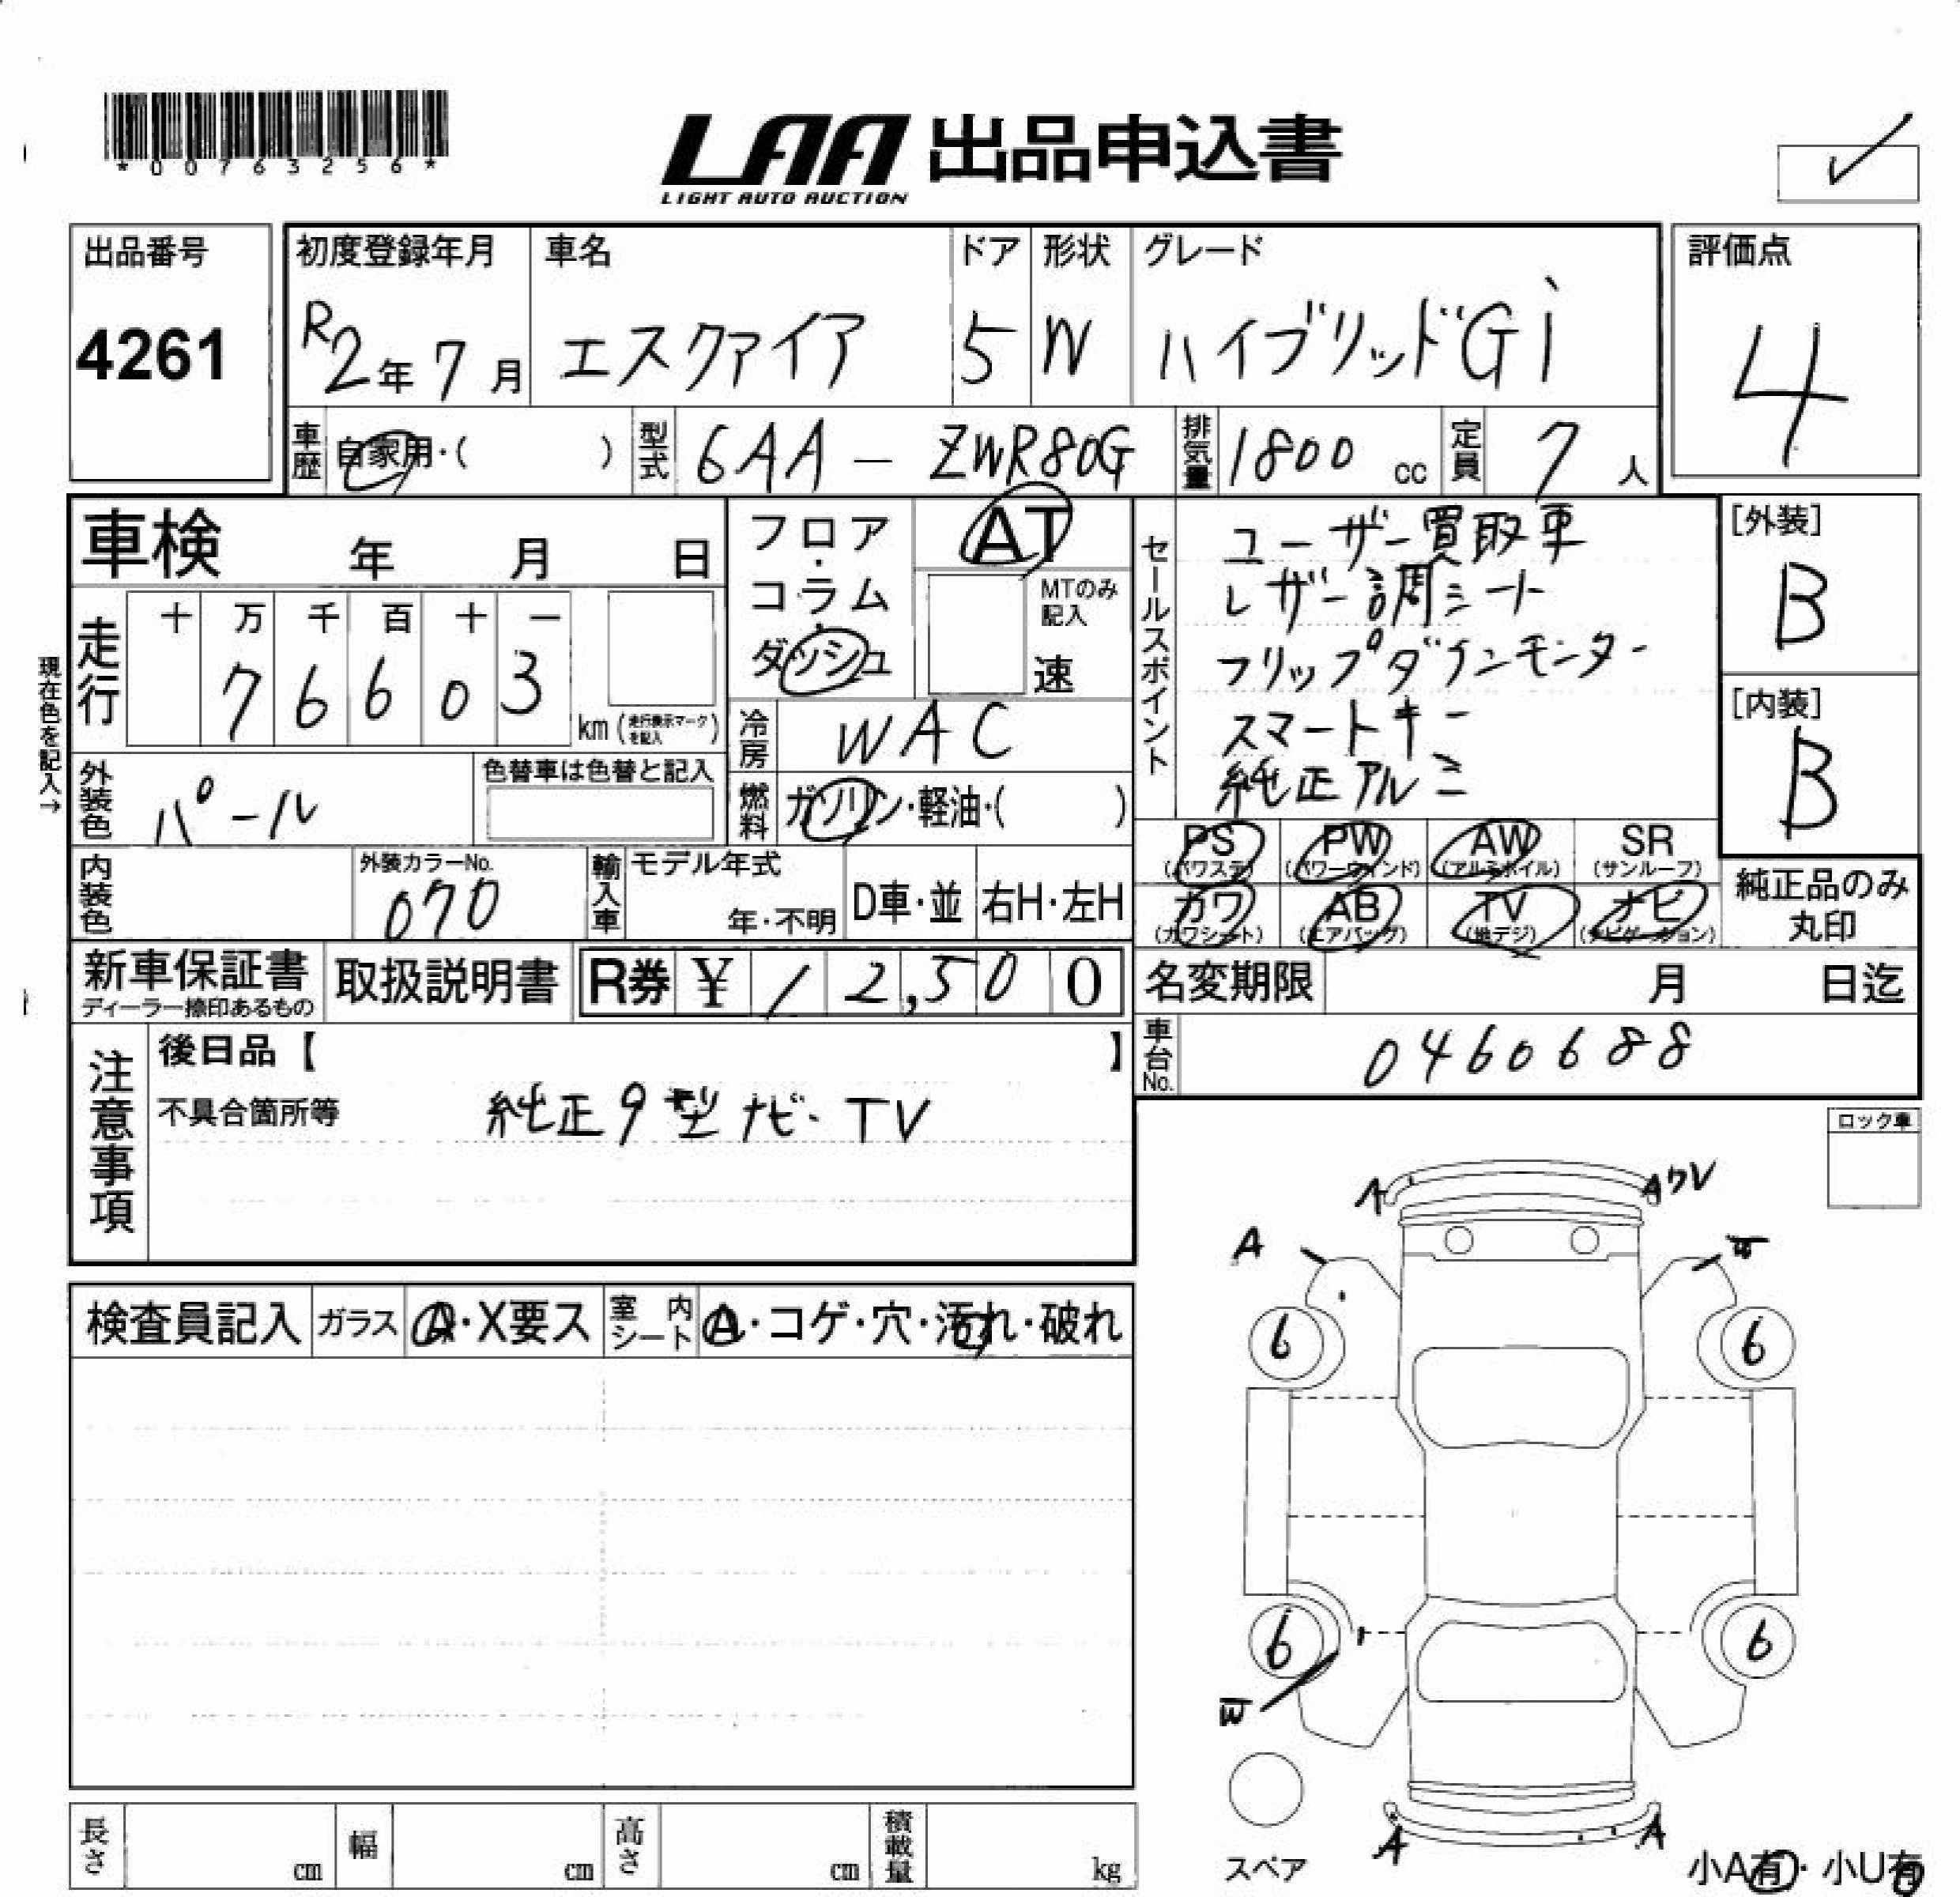 *00763256*
LAA 出品申込書
LIGHT AUTO AUCTION
出品番号
4261
初度登録年月 車名 ドア 形状 グレード
R2年7月 エスクァイア 5 W ハイブリッドGi
評価点
4
車歴 自家用・( ) 型式 6AA - ZWR80G 排気量 1800 cc 定員 7 人
車検 年 月 日
フロア・コラム・ダッシュ
AT
MTのみ記入
速
走行 十 万 千 百 十 一
76603
km (走行表示マークを記入)
現在色を記入→
冷房 WAC
外装色 パール
色替車は色替と記入
燃料 ガソリン・軽油・( )
内装色
外装カラーNo.
070
輸入車 モデル年式
年・不明
D車・並 右H・左H
セールスポイント
ユーザー買取車
レザー調シート
フリップダウンモニター
スマートキー
純正アルミ
[外装]
B
[内装]
B
PS PW AW SR
(パワステ) (パワーウィンド) (アルミホイル) (サンルーフ)
カワ AB TV ナビ
(カワシート) (エアバッグ) (地デジ) (ナビゲーション)
純正品のみ
丸印
新車保証書
ディーラー捺印あるもの
取扱説明書 R券 ¥ 12,500
名変期限 月 日迄
車台No. 0460688
注意事項
後日品【 】
不具合箇所等 純正9型ナビ・TV
ロック車
A
Aワレ
A
6
6
6
6
A
A
スペア
小A有・小U有
検査員記入 ガラス A・X要ス 室内シート A・コゲ・穴・汚れ・破れ
長さ cm 幅 cm 高さ cm 積載量 kg